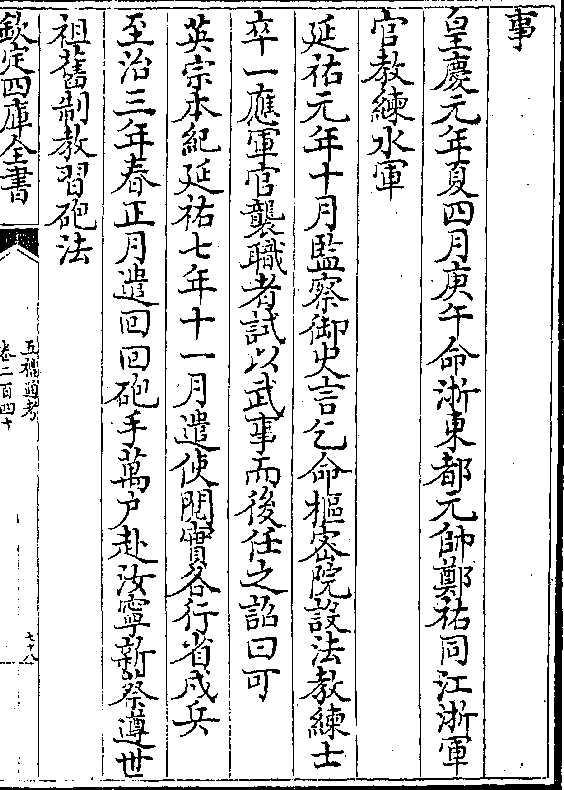 事
皇慶元年夏四月庚午命浙東都元帥鄭祐同江浙軍
官教練水軍
延祐元年十月監察御史言乞命樞密院設法教練士
卒一應軍官襲職者試以武事而後任之詔曰可
英宗本紀延祐七年十一月遣使閱實各行省戍兵
至治三年春正月遣回回砲手萬户赴汝寧新蔡遵世
祖舊制教習砲法
欽定四庫全書
五禮通考
卷二百四十
七十八